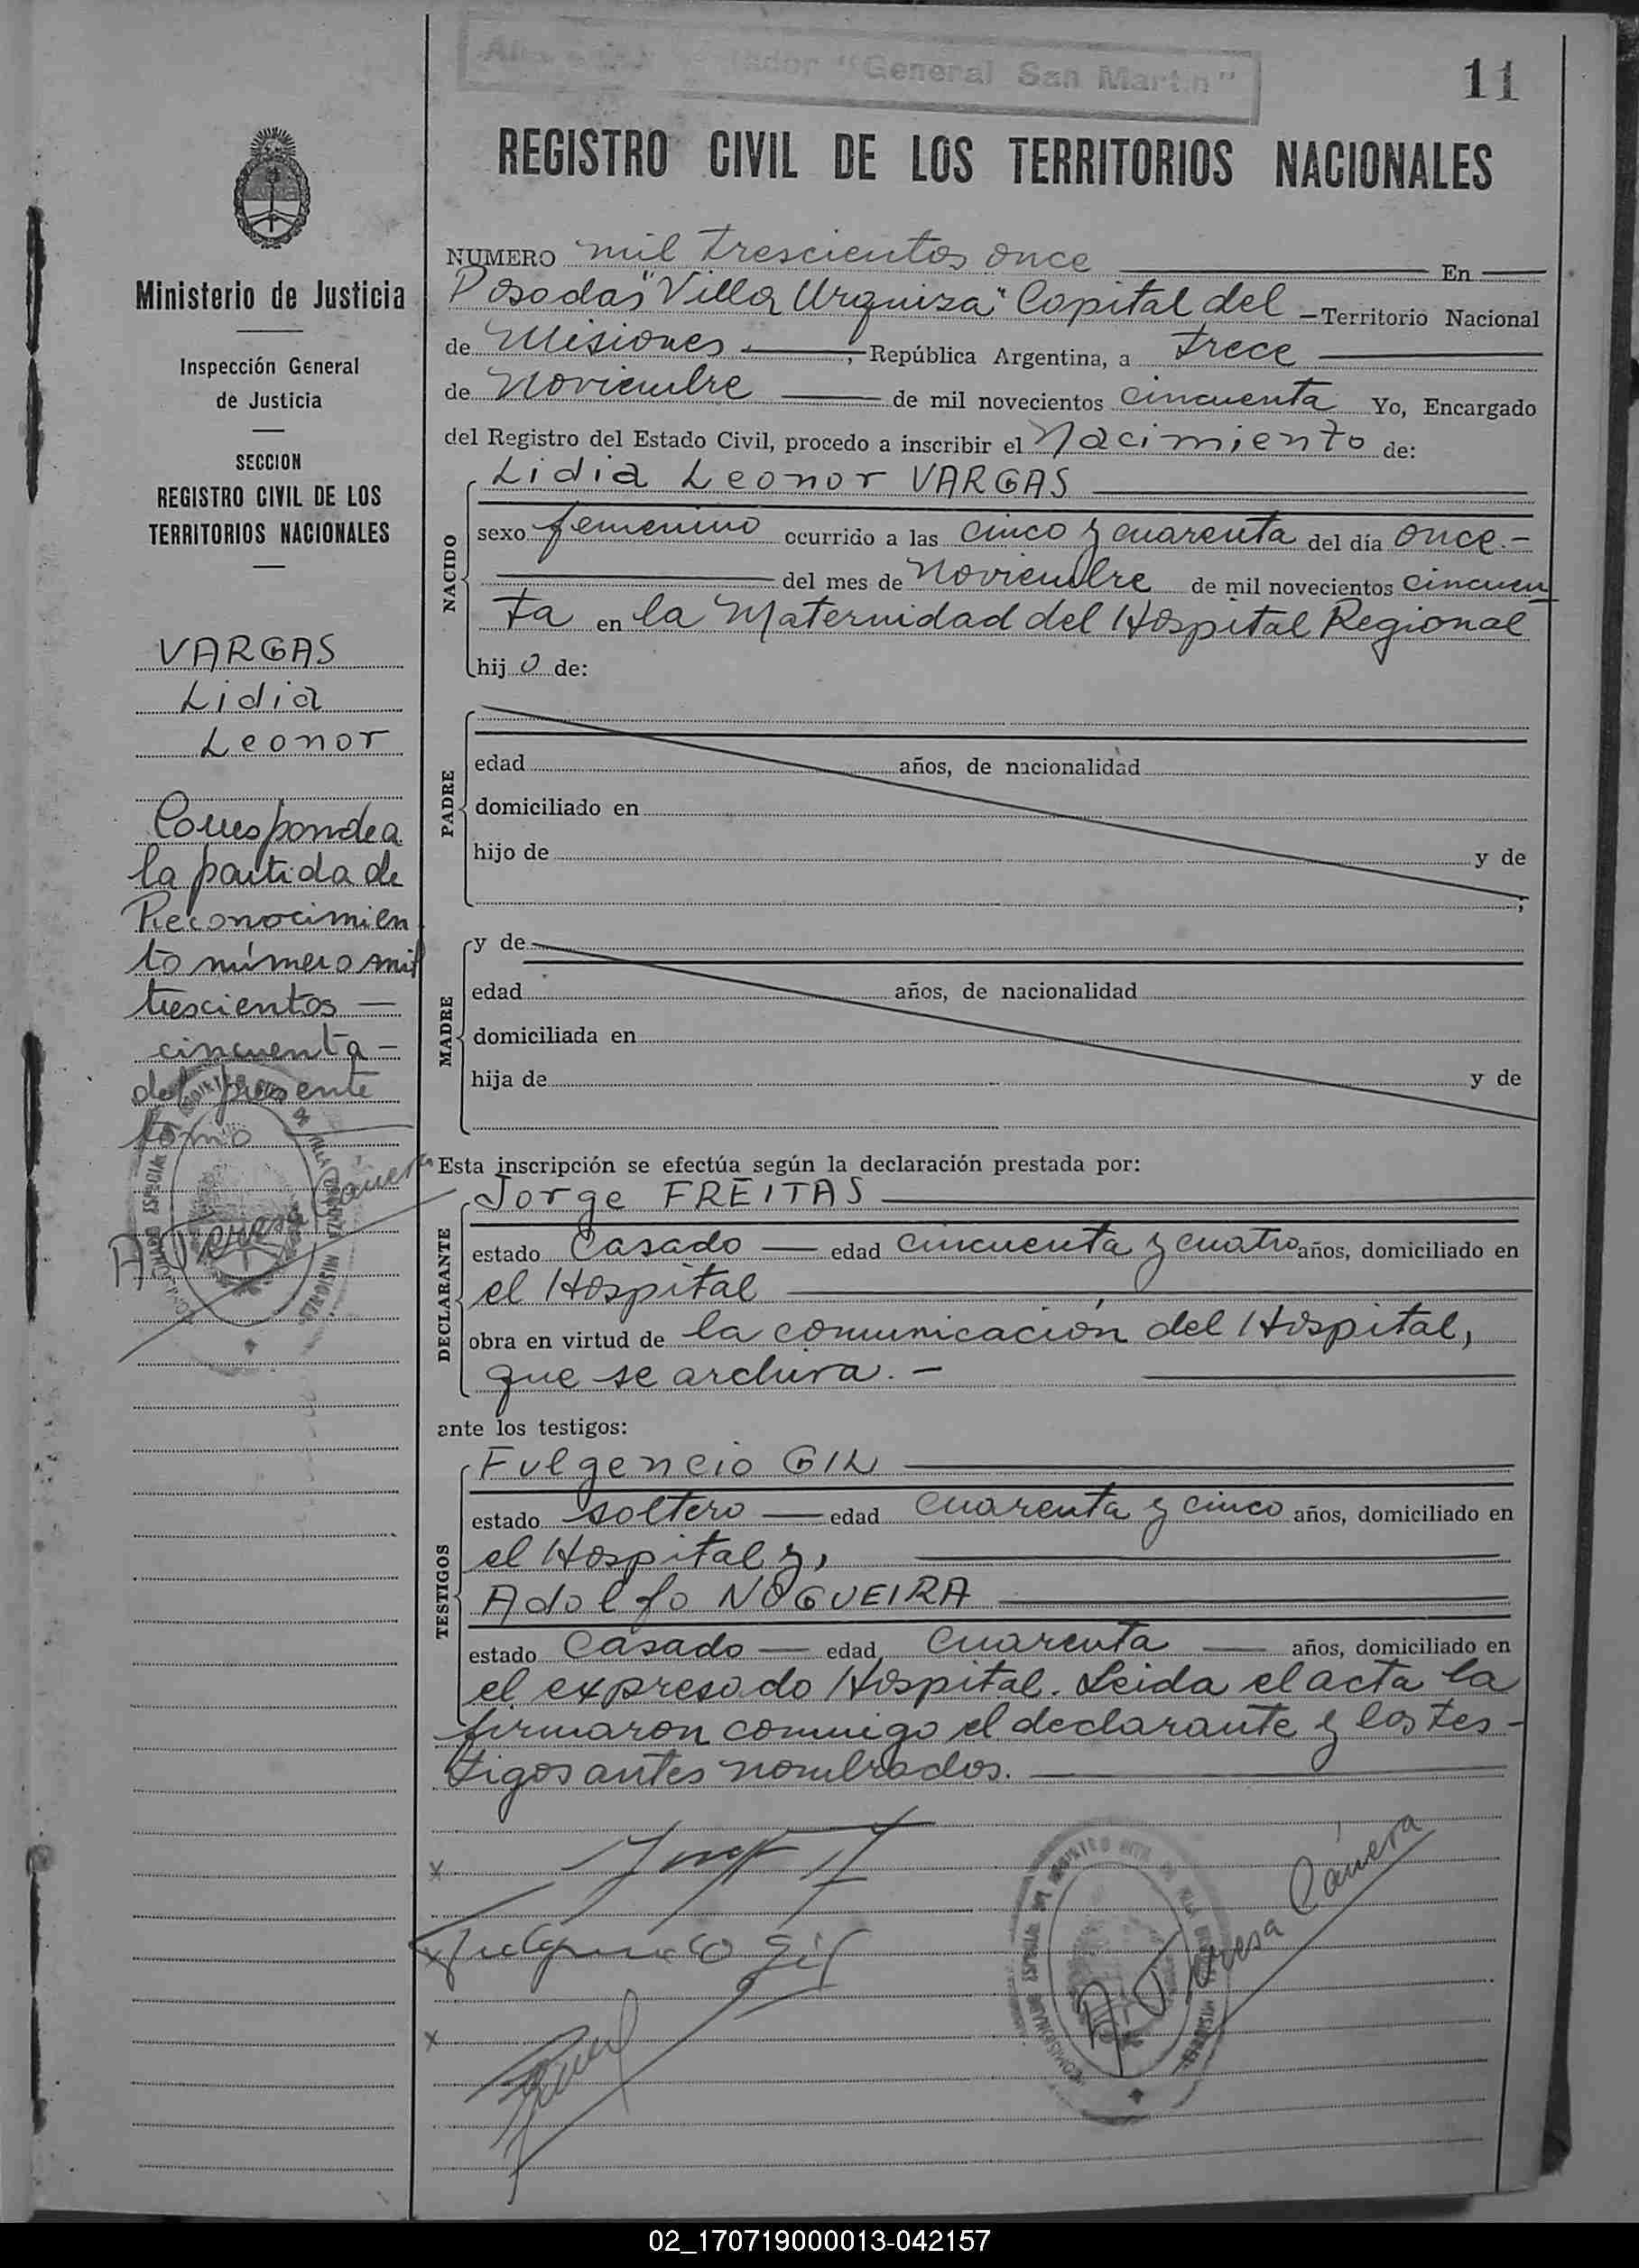 "General San Martin"
11
REGISTRO CIVIL DE LOS TERRITORIOS NACIONALES
Ministerio de Justicia
Inspección General
de Justicia
SECCION
REGISTRO CIVIL DE LOS
TERRITORIOS NACIONALES
VARGAS
Lidia
Leonor
Corresponde a
la partida de
Reconocimien
to número mil
trescientos —
cincuenta —
del presente
tomo
A Teresa Cánera
NUMERO mil trescientos once — En —
Posadas "Villa Urquiza" Capital del — Territorio Nacional
de Misiones —, República Argentina, a trece —
de Noviembre — de mil novecientos cincuenta Yo, Encargado
del Registro del Estado Civil, procedo a inscribir el Nacimiento de:
NACIDO
Lidia Leonor VARGAS —
sexo femenino ocurrido a las cinco y cuarenta del día once.-
— del mes de Noviembre de mil novecientos cincuen
ta en la Maternidad del Hospital Regional
hij o de:
PADRE
edad años, de nacionalidad
domiciliado en
hijo de y de
;
MADRE
y de
edad años, de nacionalidad
domiciliada en
hija de y de
Esta inscripción se efectúa según la declaración prestada por:
DECLARANTE
Jorge FREITAS —
estado Casado — edad cincuenta y cuatro años, domiciliado en
el Hospital —,
obra en virtud de la comunicación del Hospital,
que se archiva. — —
ante los testigos:
TESTIGOS
Fulgencio GIL —
estado soltero — edad cuarenta y cinco años, domiciliado en
el Hospital y, —
Adolfo NOGUEIRA —
estado Casado — edad cuarenta — años, domiciliado en
el expresado Hospital. Leida el acta la
firmaron conmigo el declarante y los tes-
tigos antes nombrados. —
x
x Fulgencio Gil
x
A Teresa Cánera
02_170719000013-042157